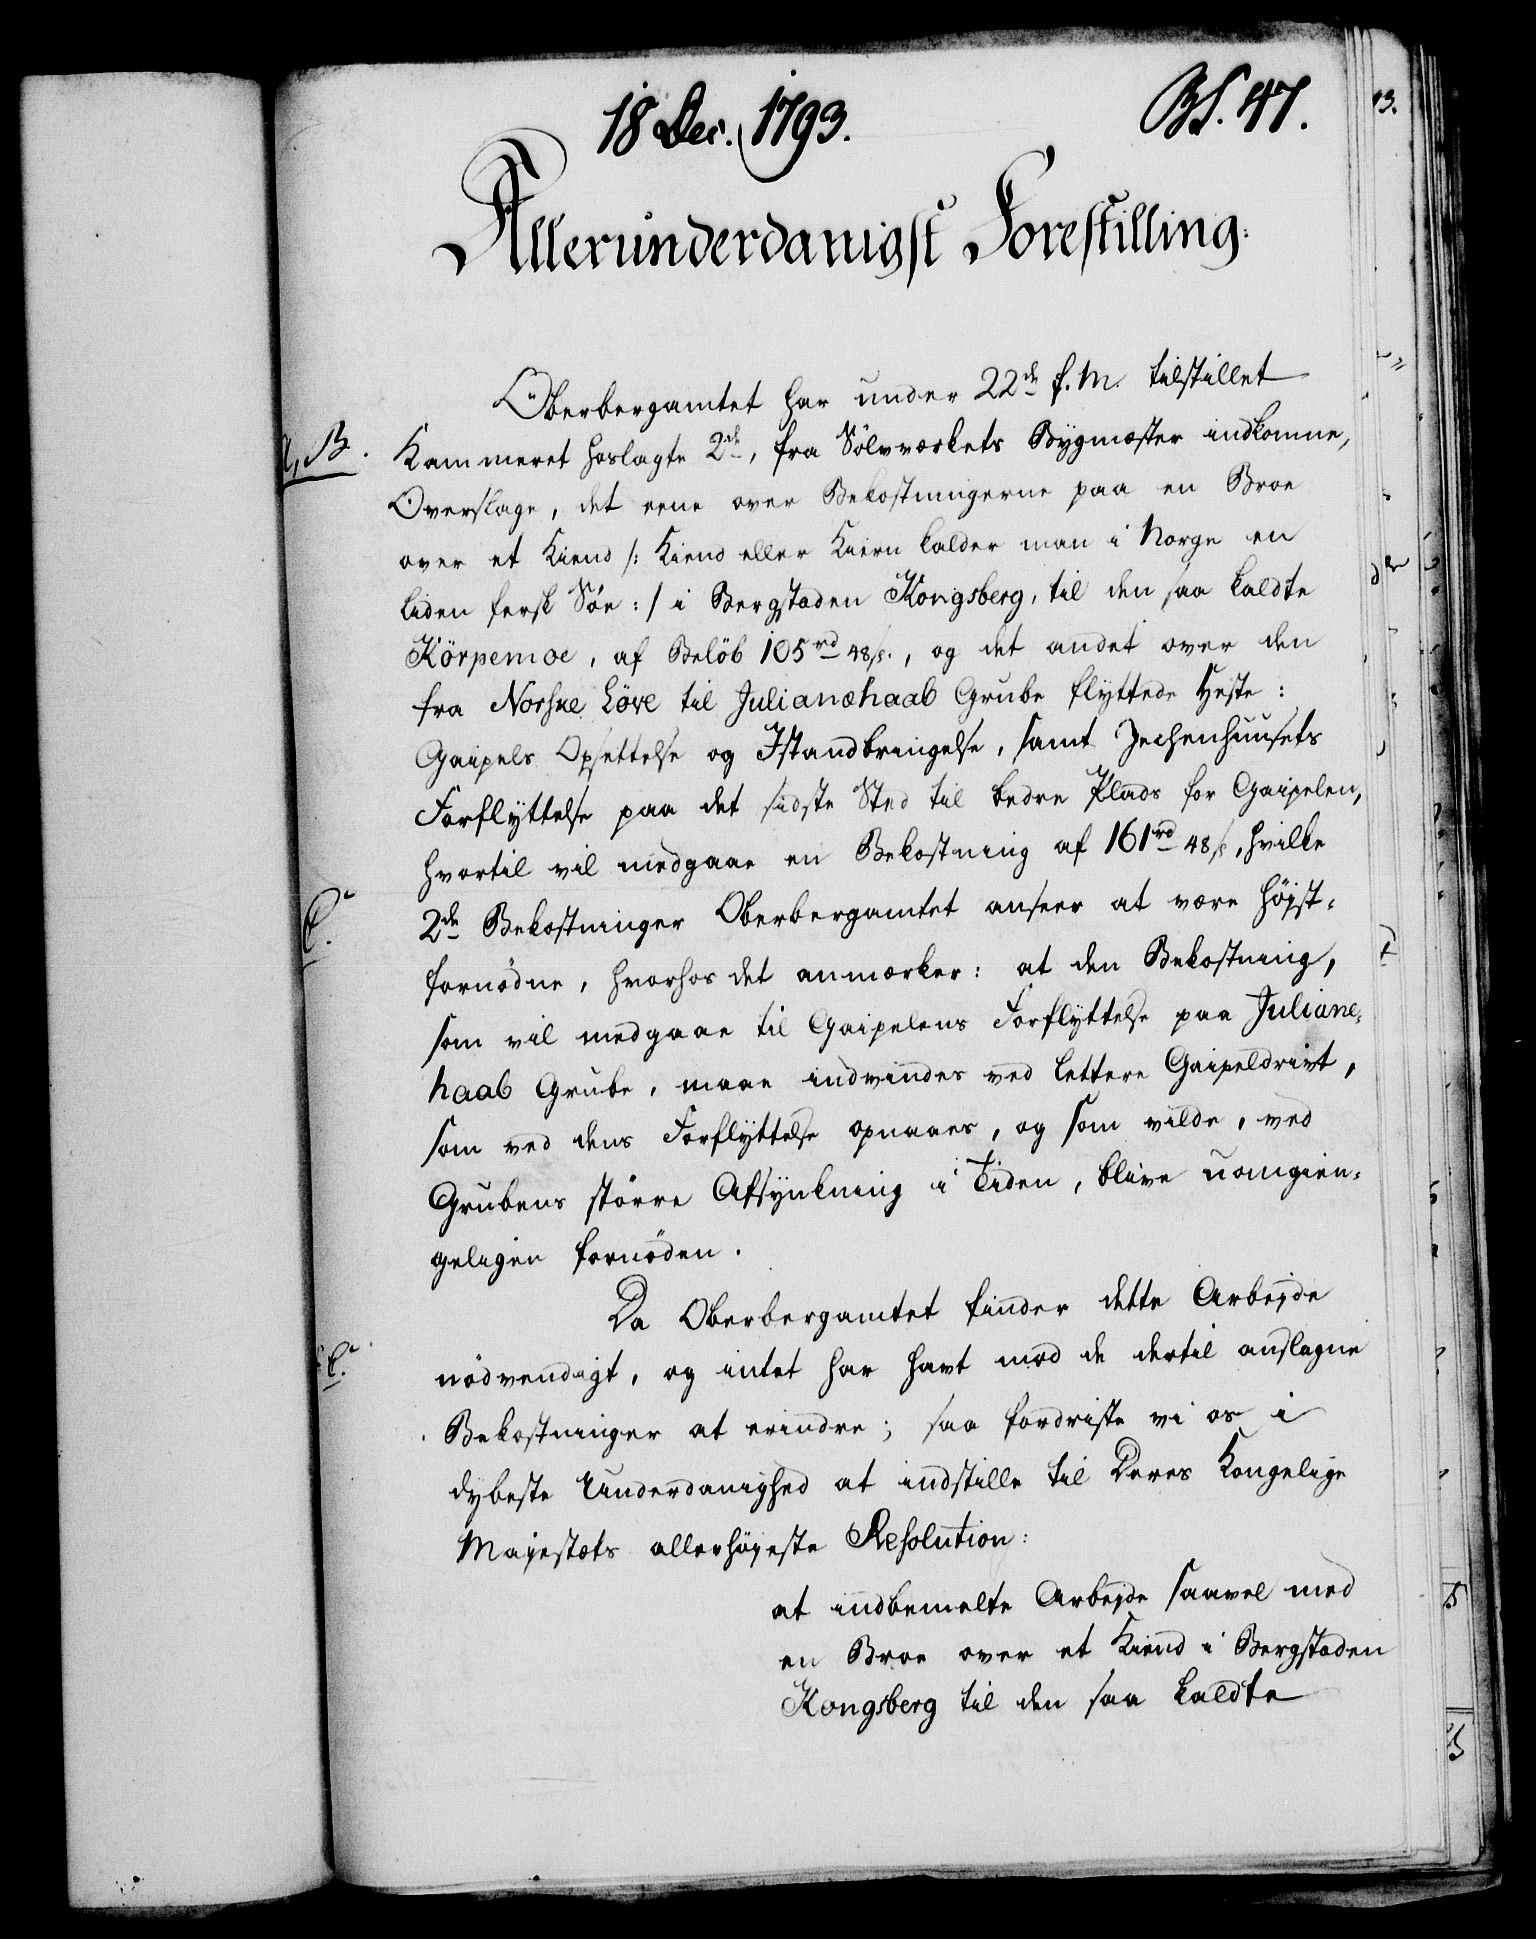 18 Dec. 1793.
BS. 47.
Allerunderdanigst Forestilling:
Oberbergamtet har under 22de f. M. tilstillet
A, B.
Kammeret hoslagte 2de, fra Sölvværkets Bygmester indkomne,
Overslage, det eene over Bekostningerne paa en Broe
over et Kiend /: Kiend eller Kiern kalder man i Norge en
liden fersk Söe :/ i Bergstaden Kongsberg, til den saa kaldte
Körpemoe, af Belöb 105 rd 48 s., og det andet over den
fra Norske Löve til Julianæhaab Grube flyttede Heste:
Gaipels Opsettelse og Istandbringelse, samt Zechenhuusets
Forflyttelse paa det sidste Sted til bedre Plads for Gaipelen,
hvortil vil medgaae en Bekostning af 161 rd 48 s, hvilke
C.
2de Bekostninger Oberbergamtet anseer at være höjst-
fornödne, hvorhos det anmærker: at den Bekostning,
som vil medgaae til Gaipelens Forflyttelse paa Juliane-
haab Grube, maae indvindes ved lettere Gaipeldrivt,
som ved dens Forflyttelse opnaaes, og som vilde, ved
Grubens större Afsynkning i Tiden, blive uomgien-
geligen fornöden.
Da Oberbergamtet finder dette Arbejde
C.
nödvendigt, og intet har havt mod de dertil anslagne
Bekostninger at erindre; saa fordriste vi os i
dybeste Underdanighed at indstille til Deres Kongelige
Majestæts allerhöjeste Resolution:
at indbemelte Arbejde saavel med
en Broe over et Kiend i Bergstaden
Kongsberg til den saa kaldte